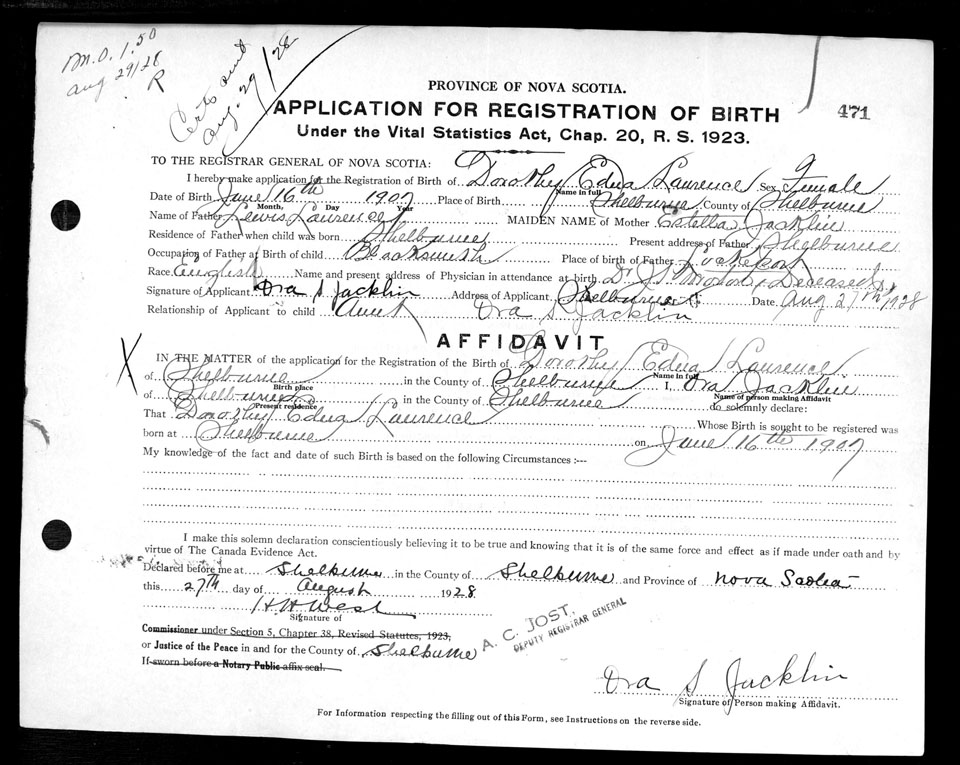 M.O. 1.50
Aug 29/28
R
Certs sent
Aug. 29/28
PROVINCE OF NOVA SCOTIA.
APPLICATION FOR REGISTRATION OF BIRTH
471
Under the Vital Statistics Act, Chap. 20, R. S. 1923.
TO THE REGISTRAR GENERAL OF NOVA SCOTIA:
I hereby make application for the Registration of Birth of Dorothy Edna Laurence Sex Female
Name in full
Date of Birth June 16th 1907 Place of Birth Shelburne County of Shelburne
Month. Day Year
Name of Father Lewis Laurence MAIDEN NAME of Mother Estella Jacklin
Residence of Father when child was born Shelburne Present address of Father Shelburne
Occupation of Father at Birth of child Blacksmith Place of birth of Father Lockeport
Race English Name and present address of Physician in attendance at birth Dr. Deceased
Signature of Applicant Ora S Jacklin Address of Applicant Shelburne Date Aug 27th, 1928
Relationship of Applicant to child Aunt Ora S. Jacklin
AFFIDAVIT
X
IN THE MATTER of the application for the Registration of the Birth of Dorothy Edna Laurence
Name in full
of Shelburne in the County of Shelburne I, Ora Jacklin
Birth place
Name of person making Affidavit
of Shelburne in the County of Shelburne do solemnly declare:
Present residence
That Dorothy Edna Laurence Whose Birth is sought to be registered was
born at Shelburne on June 16th 1907
My knowledge of the fact and date of such Birth is based on the following Circumstances :—
I make this solemn declaration conscientiously believing it to be true and knowing that it is of the same force and effect as if made under oath and by
virtue of The Canada Evidence Act.
Declared before me at Shelburne in the County of Shelburne and Province of Nova Scotia
this 27TH day of August 1928
H H West
Signature of
Commissioner under Section 5, Chapter 38, Revised Statutes, 1923,
or Justice of the Peace in and for the County of Shelburne
If sworn before a Notary Public affix seal.
A. C. JOST,
DEPUTY REGISTRAR GENERAL
Ora S Jacklin
Signature of Person making Affidavit.
For Information respecting the filling out of this Form, see Instructions on the reverse side.